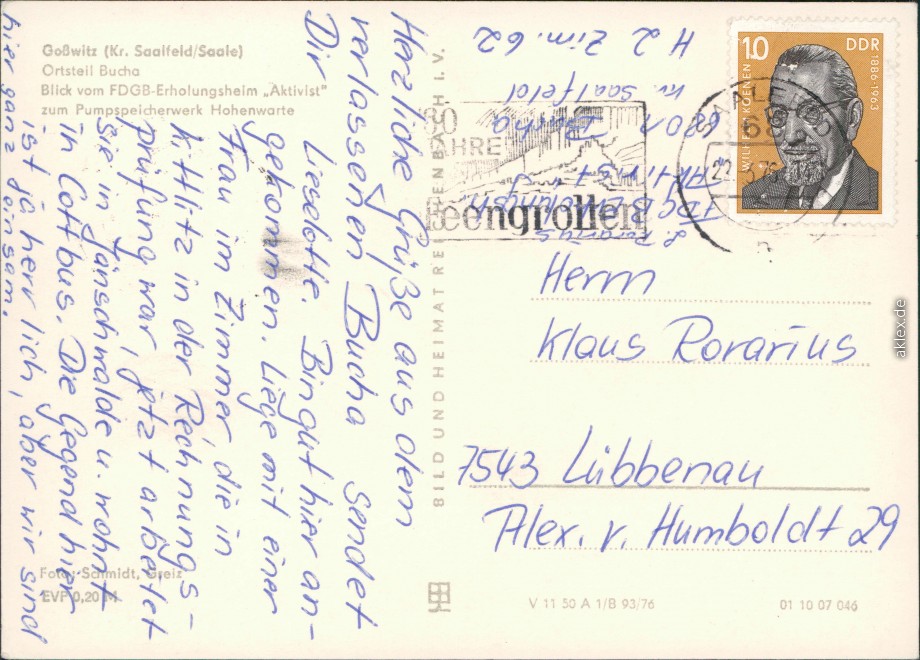 Goßwitz (Kr. Saalfeld/Saale)
Ortsteil Bucha
Blick vom FDGB-Erholungsheim „Aktivist"
zum Pumpspeicherwerk Hohenwarte
Herzliche Grüße aus dem
verlassenen Bucha sendet
Dir Leselotte. Bin gut hier an-
gekommen. Liege mit einer
Frau im Zimmer, die in
Kittlitz in der Rechnungs-
prüfung war, jetzt arbeitet
sie in Jänschwalde u. wohnt
in Cottbus. Die Gegend hier
ist ja herrlich, aber wir sind
hier ganz einsam.
Foto: Schmidt, Greiz
EVP 0,20 M
BILD UND HEIMAT REICHENBACH I. V.
L. Rorarius
FDGB Erholungsh.
Aktivist
6801 Bucha
Kr. Saalfeld
H 2 Zim. 62
JAHRE
Feengrotten
SAALFELD
68
10
DDR
WILHELM KOENEN
1886-1963
Herrn
Klaus Rorarius
7543 Lübbenau
Alex. v. Humboldt 29
V 11 50 A 1/B 93/76
01 10 07 046
aklex.de